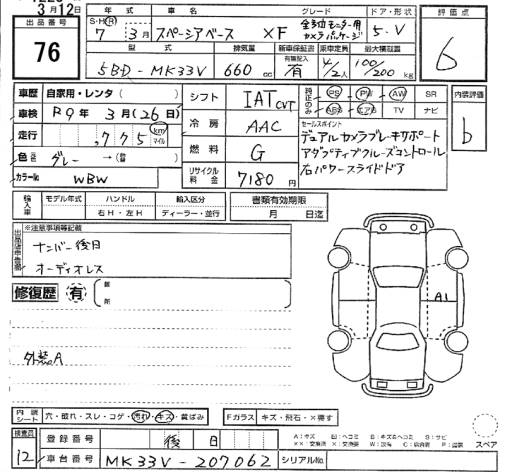 3月12日
出品番号
76
年式 車名 グレード ドア・形状
S・H・R 7 3月 スペーシアベース XF 全方位モニター用カメラパッケージ 5・V
型式 排気量 新車保証書 乗車定員 最大積載量
有 記載無
5BD-MK33V 660 cc 有 4/2人 100/200 kg
評価点
6
車歴 自家用・レンタ( )
車検 R9年 3月(26日)
走行 ,775 km マイル
色 グレー→( )
カラーNo WBW
シフト IAT CVT
冷房 AAC
燃料 G
リサイクル料金 7180円
PS PW AW SR
ABS エアB TV ナビ
セールスポイント
デュアルカメラブレーキサポート
アダプティブクルーズコントロール
右パワースライドドア
内装評価
b
輸入車 モデル年式 ハンドル 輸入区分
右H・左H ディーラー・並行
書類有効期限
月 日迄
※注意事項等記載
ナンバー後日
オーディオレス
修復歴 有
外装A
A1
内装シート 穴・破れ・スレ・コゲ・汚れ・キズ・黄ばみ
Fガラス キズ・飛石・X要す
検査員
12
登録番号 後日
車台番号 MK33V-207062 シリアルNo.
スペア